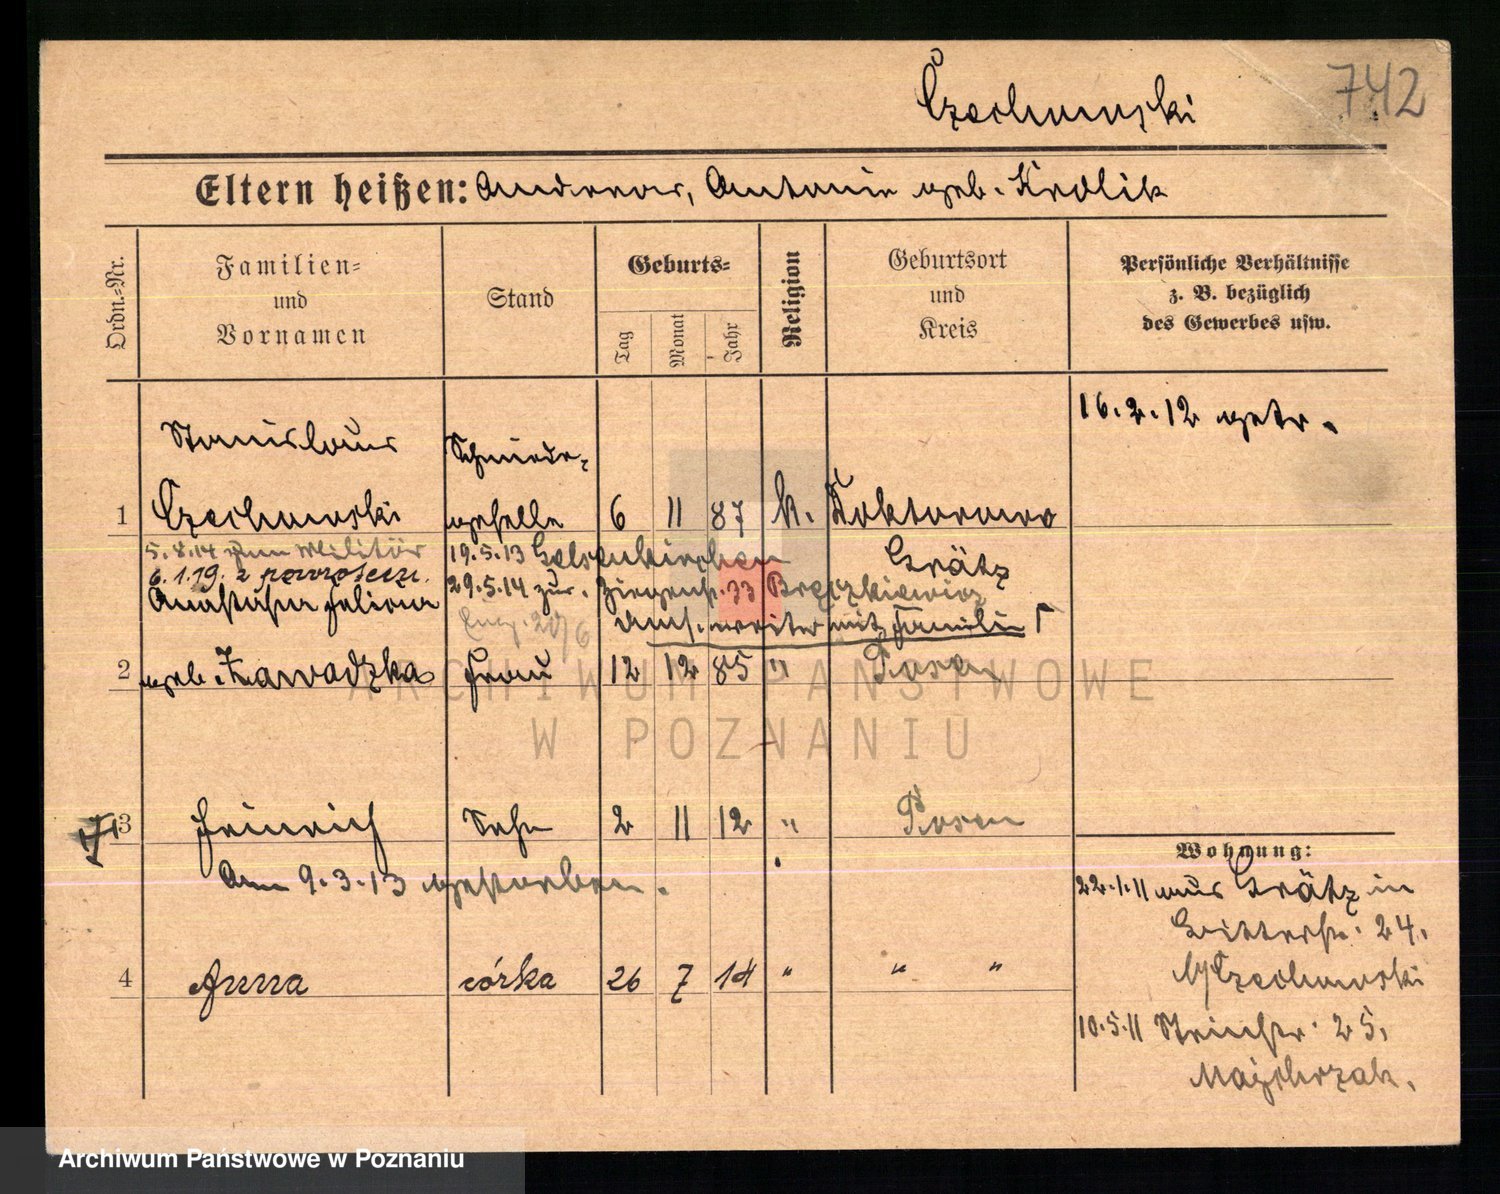 742
Czechowski
Eltern heißen: Andreas, Antonie geb. Krolik
Ordn.-Nr.
Familien-
und
Vornamen
Stand
Geburts-
Tag
Monat
Jahr
Religion
Geburtsort
und
Kreis
Persönliche Verhältnisse
z. B. bezüglich
des Gewerbes usw.
16.2.12 getr.
Stanislaus Schmiede-
1 Czechowski geselle 6 11 87 k. Doktorowo
5.8.14 zum Militär 19.5.13 Gelsenkirchen Grätz
6.1.19. z powrotem. 29.5.14 zur. 33 Breczkiewicz
Anastasia Felicia 20/6 weiter mit Familie
2 geb. Zawadzka Frau 12 12 85 " Posen
3 Heinrich Sohn 2 11 12 " Posen
Am 9.3.13 gestorben.
4 Anna córka 26 7 14 " " "
Wohnung:
22.1.11 aus Grätz in
Ritterstr. 24,
Czechowski
10.5.11 Steinstr. 25,
Majchrzak.
ARCHIWUM PAŃSTWOWE
W POZNANIU
Archiwum Państwowe w Poznaniu